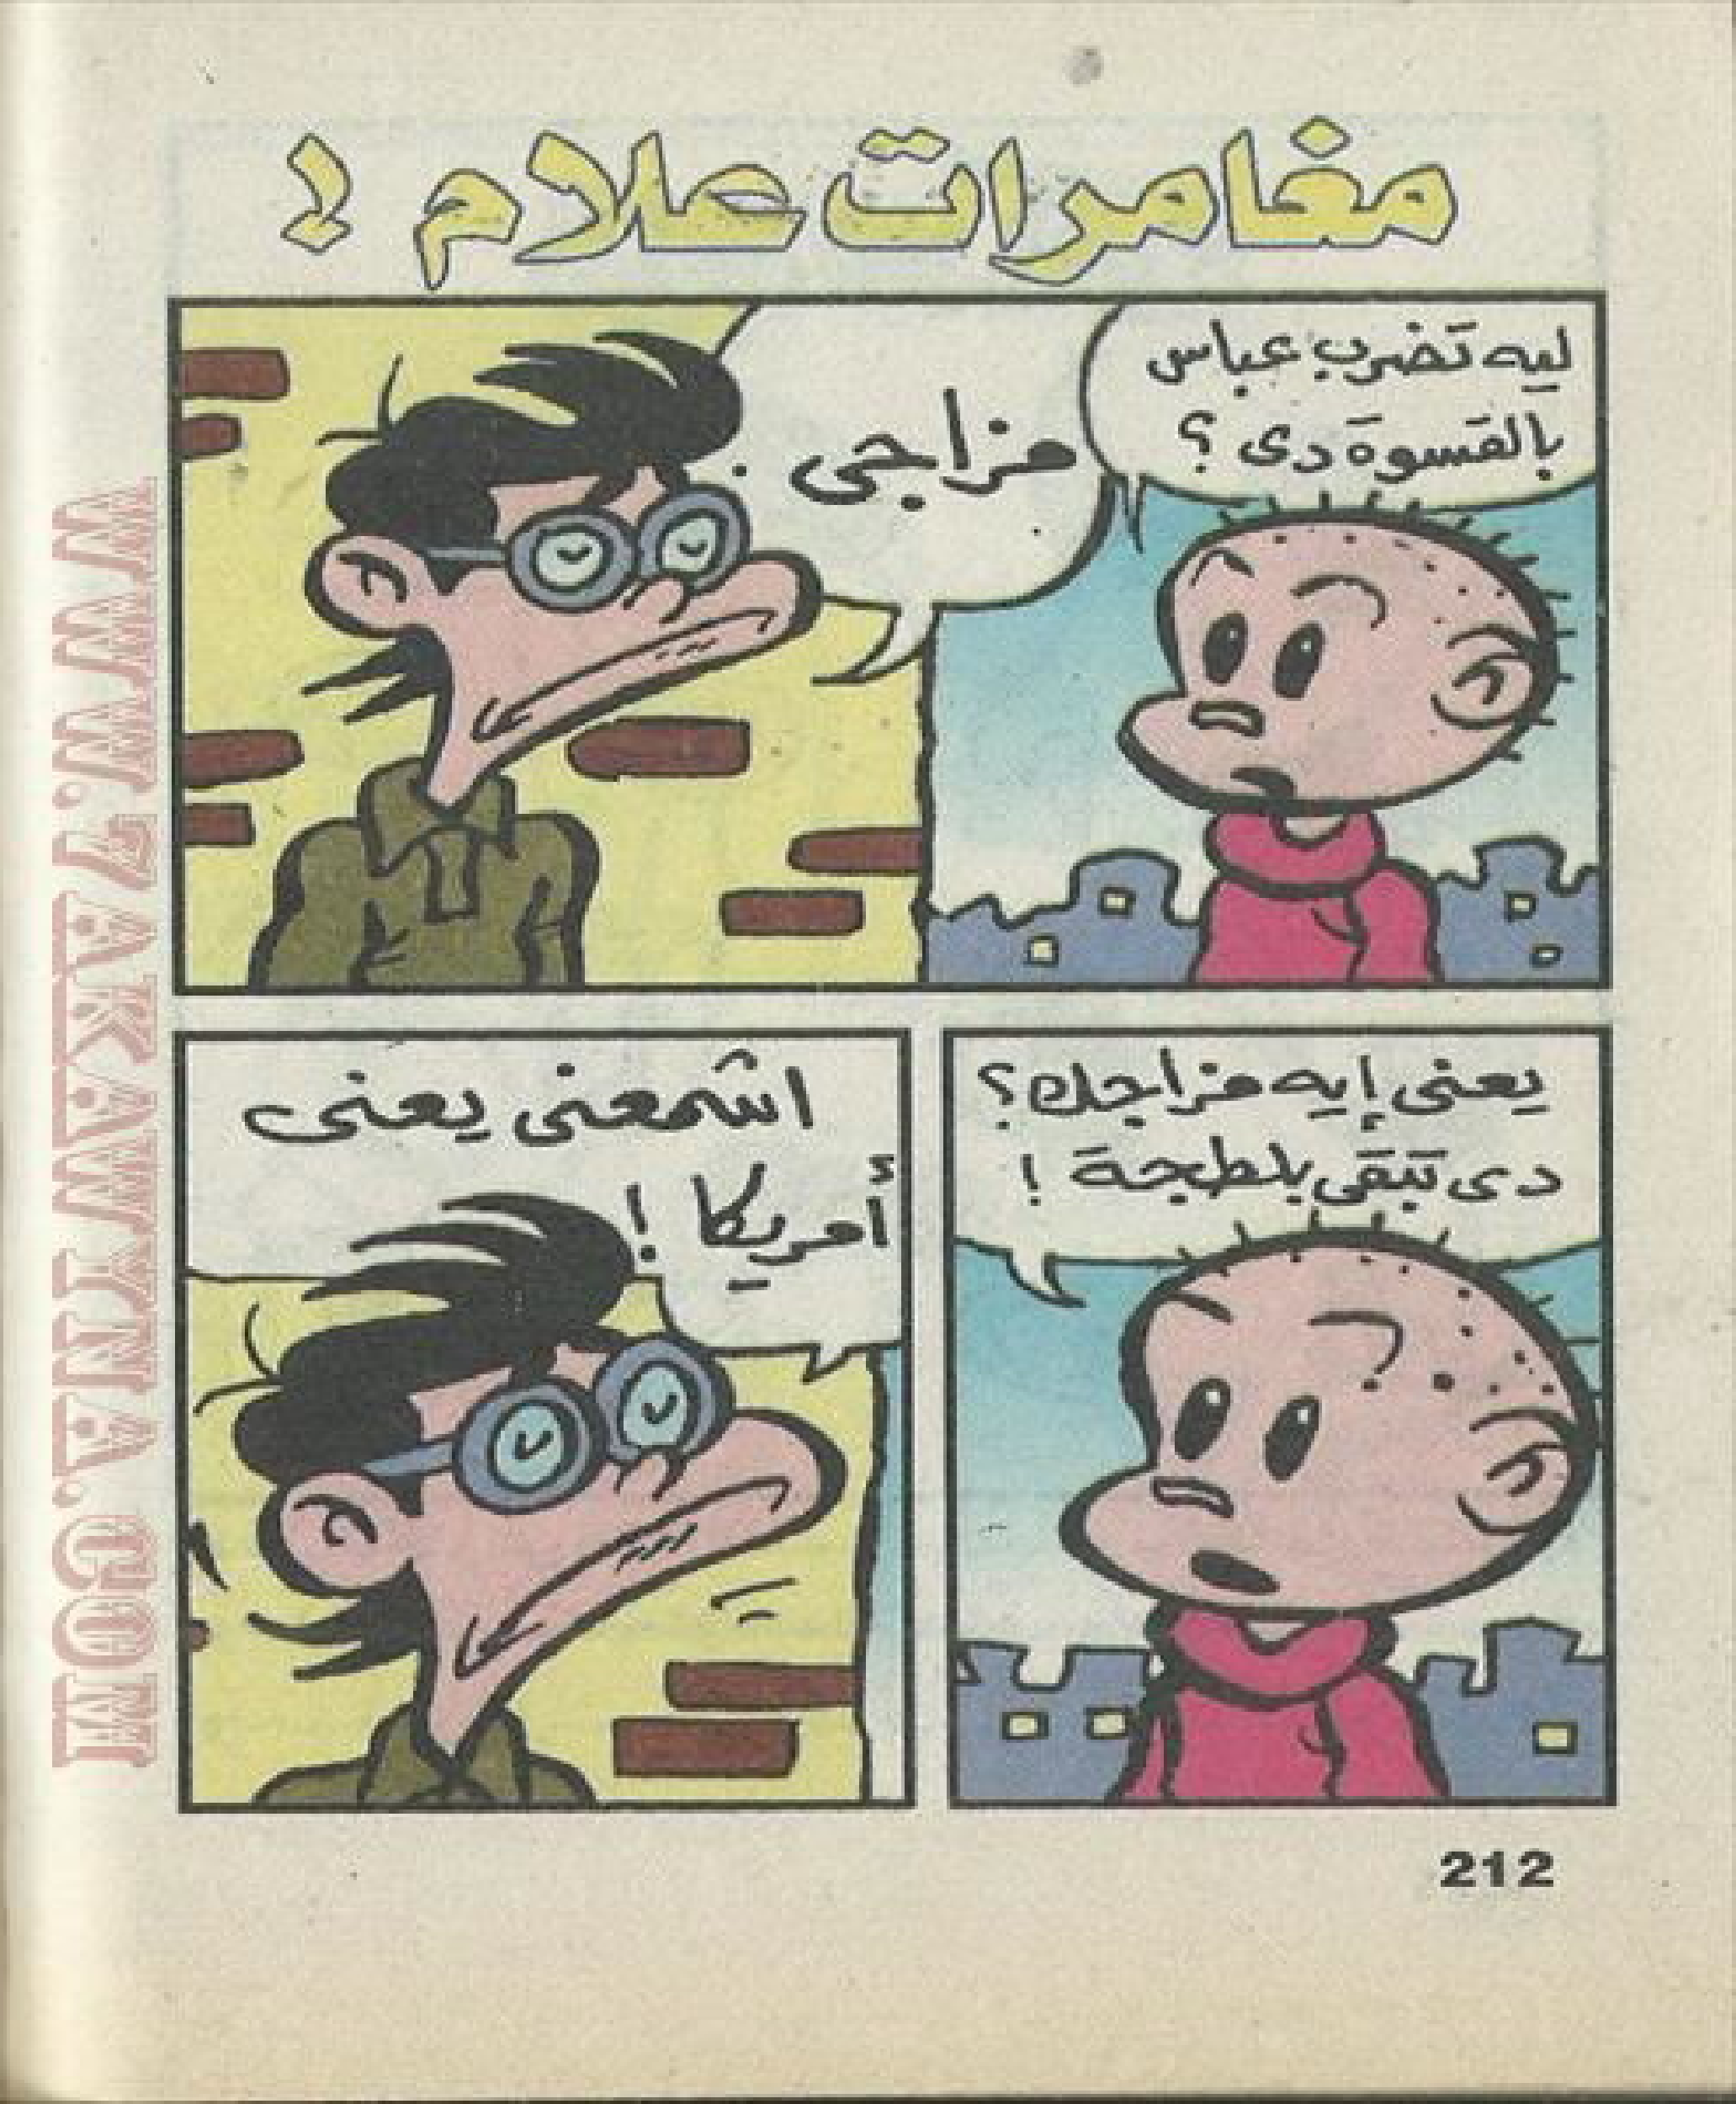 مغامرات علام !
ليه تضرب عباس
بالقسوة دى ؟
مزاجى .
يعنى إيه مزاجك ؟
دى تبقى بلطجة !
اشمعنى يعنى
أمريكا !
212
WWW.7AKAWYNA.COM